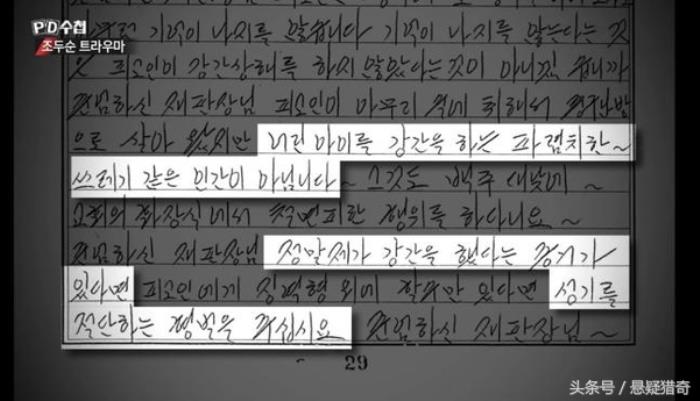 PD수첩
조두순 트라우마
기억이 나지를 않습니다 기억이 나지를 않는다는 것
은 피고인이 강간상해를 하지 않았다는것이 아니겠습니까
존경하신 재판장님 피고인이 아무리 술에 취해서
으로 살아 왔지만 어린 아이를 강간을 하는 파렴치한~
쓰레기 같은 인간이 아닙니다~ 그것도 백주 대낮에~
교회의 화장실에서 철면피한 행위를 하다니요~
존경하신 재판장님 정말제가 강간을 했다는 증거가
있다면 피고인에게 징역형 외에 할 수만 있다면 성기를
절단하는 형벌을 주십시요 존경하신 재판장님~
- 29
头条号 / 悬疑猎奇